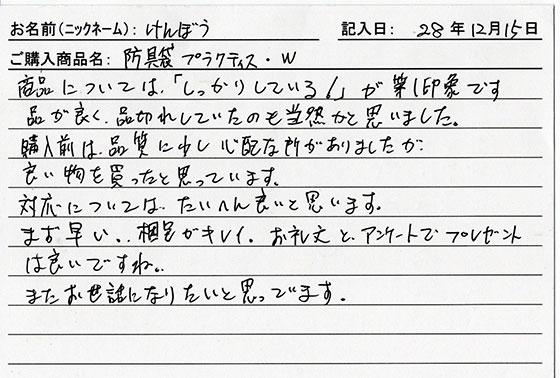 お名前(ニックネーム): けんぼう 記入日: 28年12月15日
ご購入商品名: 防具袋 プラクティス・W
商品については、「しっかりしている!」が第1印象です
品が良く、品切れしていたのも当然かと思いました。
購入前は、品質に少し心配な所がありましたが、
良い物を買ったと思っています。
対応については、たいへん良いと思います。
まず早い、梱包がキレイ、お礼文と、アンケートでプレゼント
は良いですね。
またお世話になりたいと思ってます。